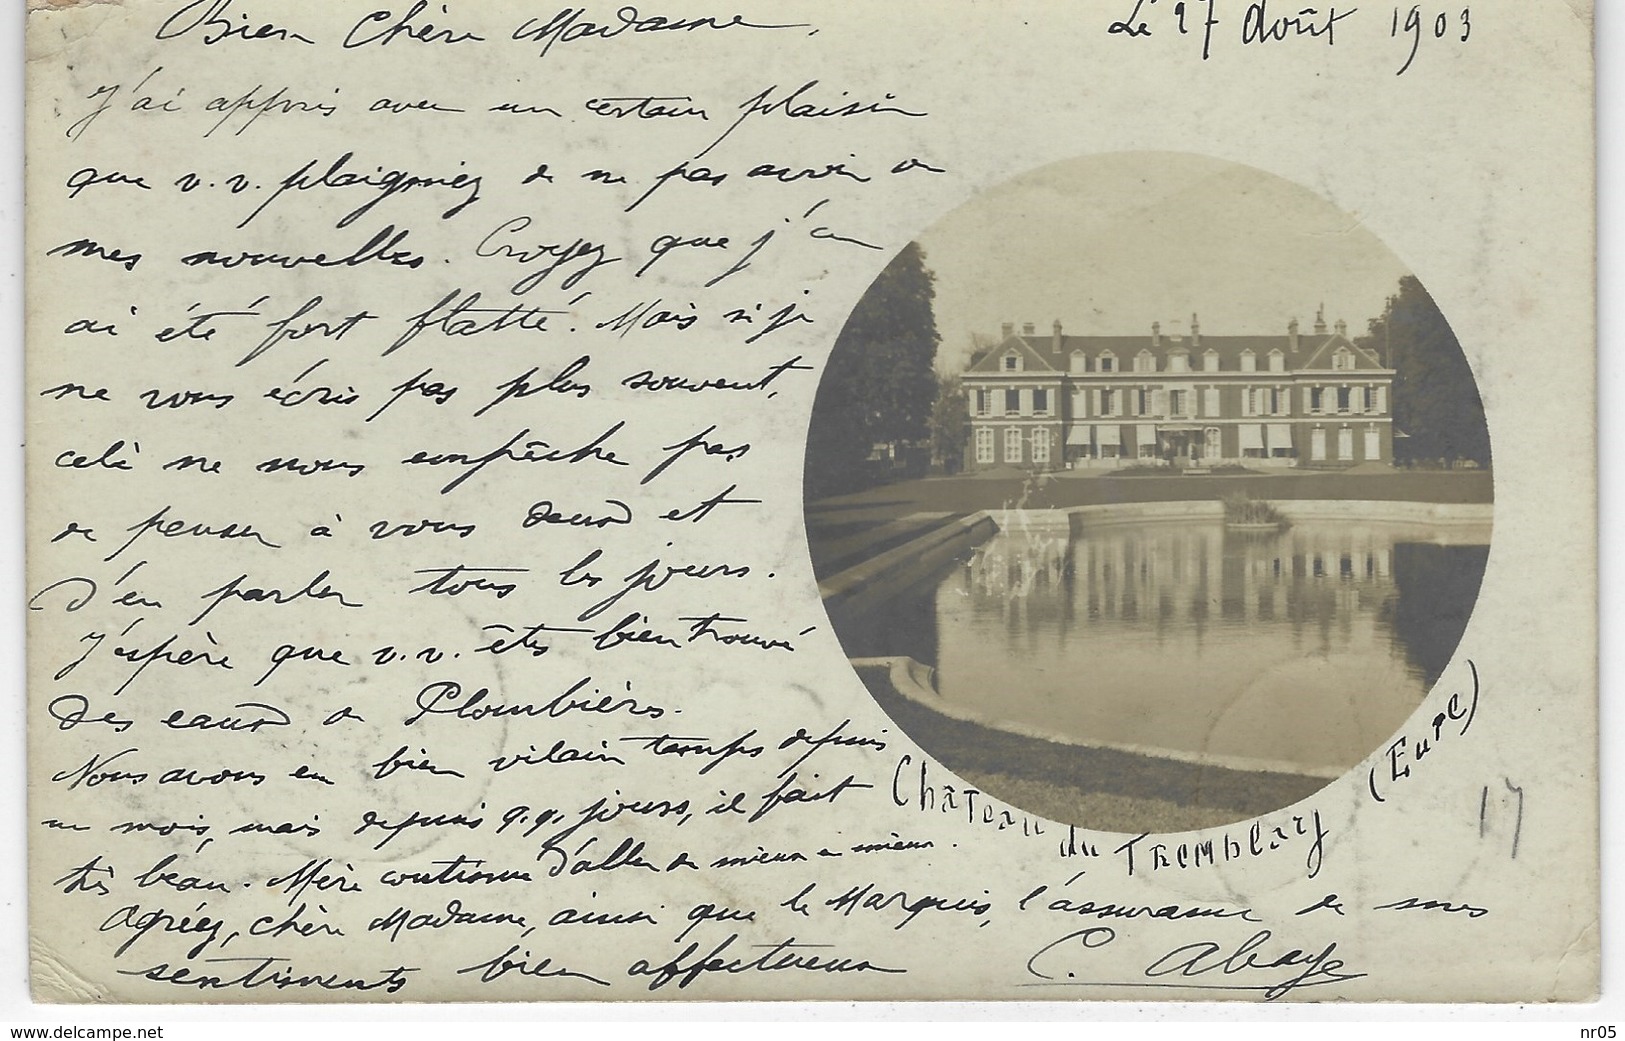 Le 27 Août 1903
Bien Chère Madame,
J'ai appris avec un certain plaisir
que v. v. plaigniez de ne pas avoir de
mes nouvelles. Croyez que j'en
ai été fort flatté. Mais si je
ne vous écris pas plus souvent,
celà ne nous empêche pas
de penser à vous deux et
d'en parler tous les jours.
J'espère que v. v. êtes bien trouvé
des eaux de Plombières.
Nous avons eu bien vilain temps depuis
un mois, mais depuis q.q. jours, il fait
très beau. Mère continue d'aller de mieux en mieux.
Agréez, chère Madame, ainsi que le Marquis, l'assurance de mes
sentiments bien affectueux
C. Abaye
Château du Tremblay (Eure)
17
www.delcampe.net
nr05